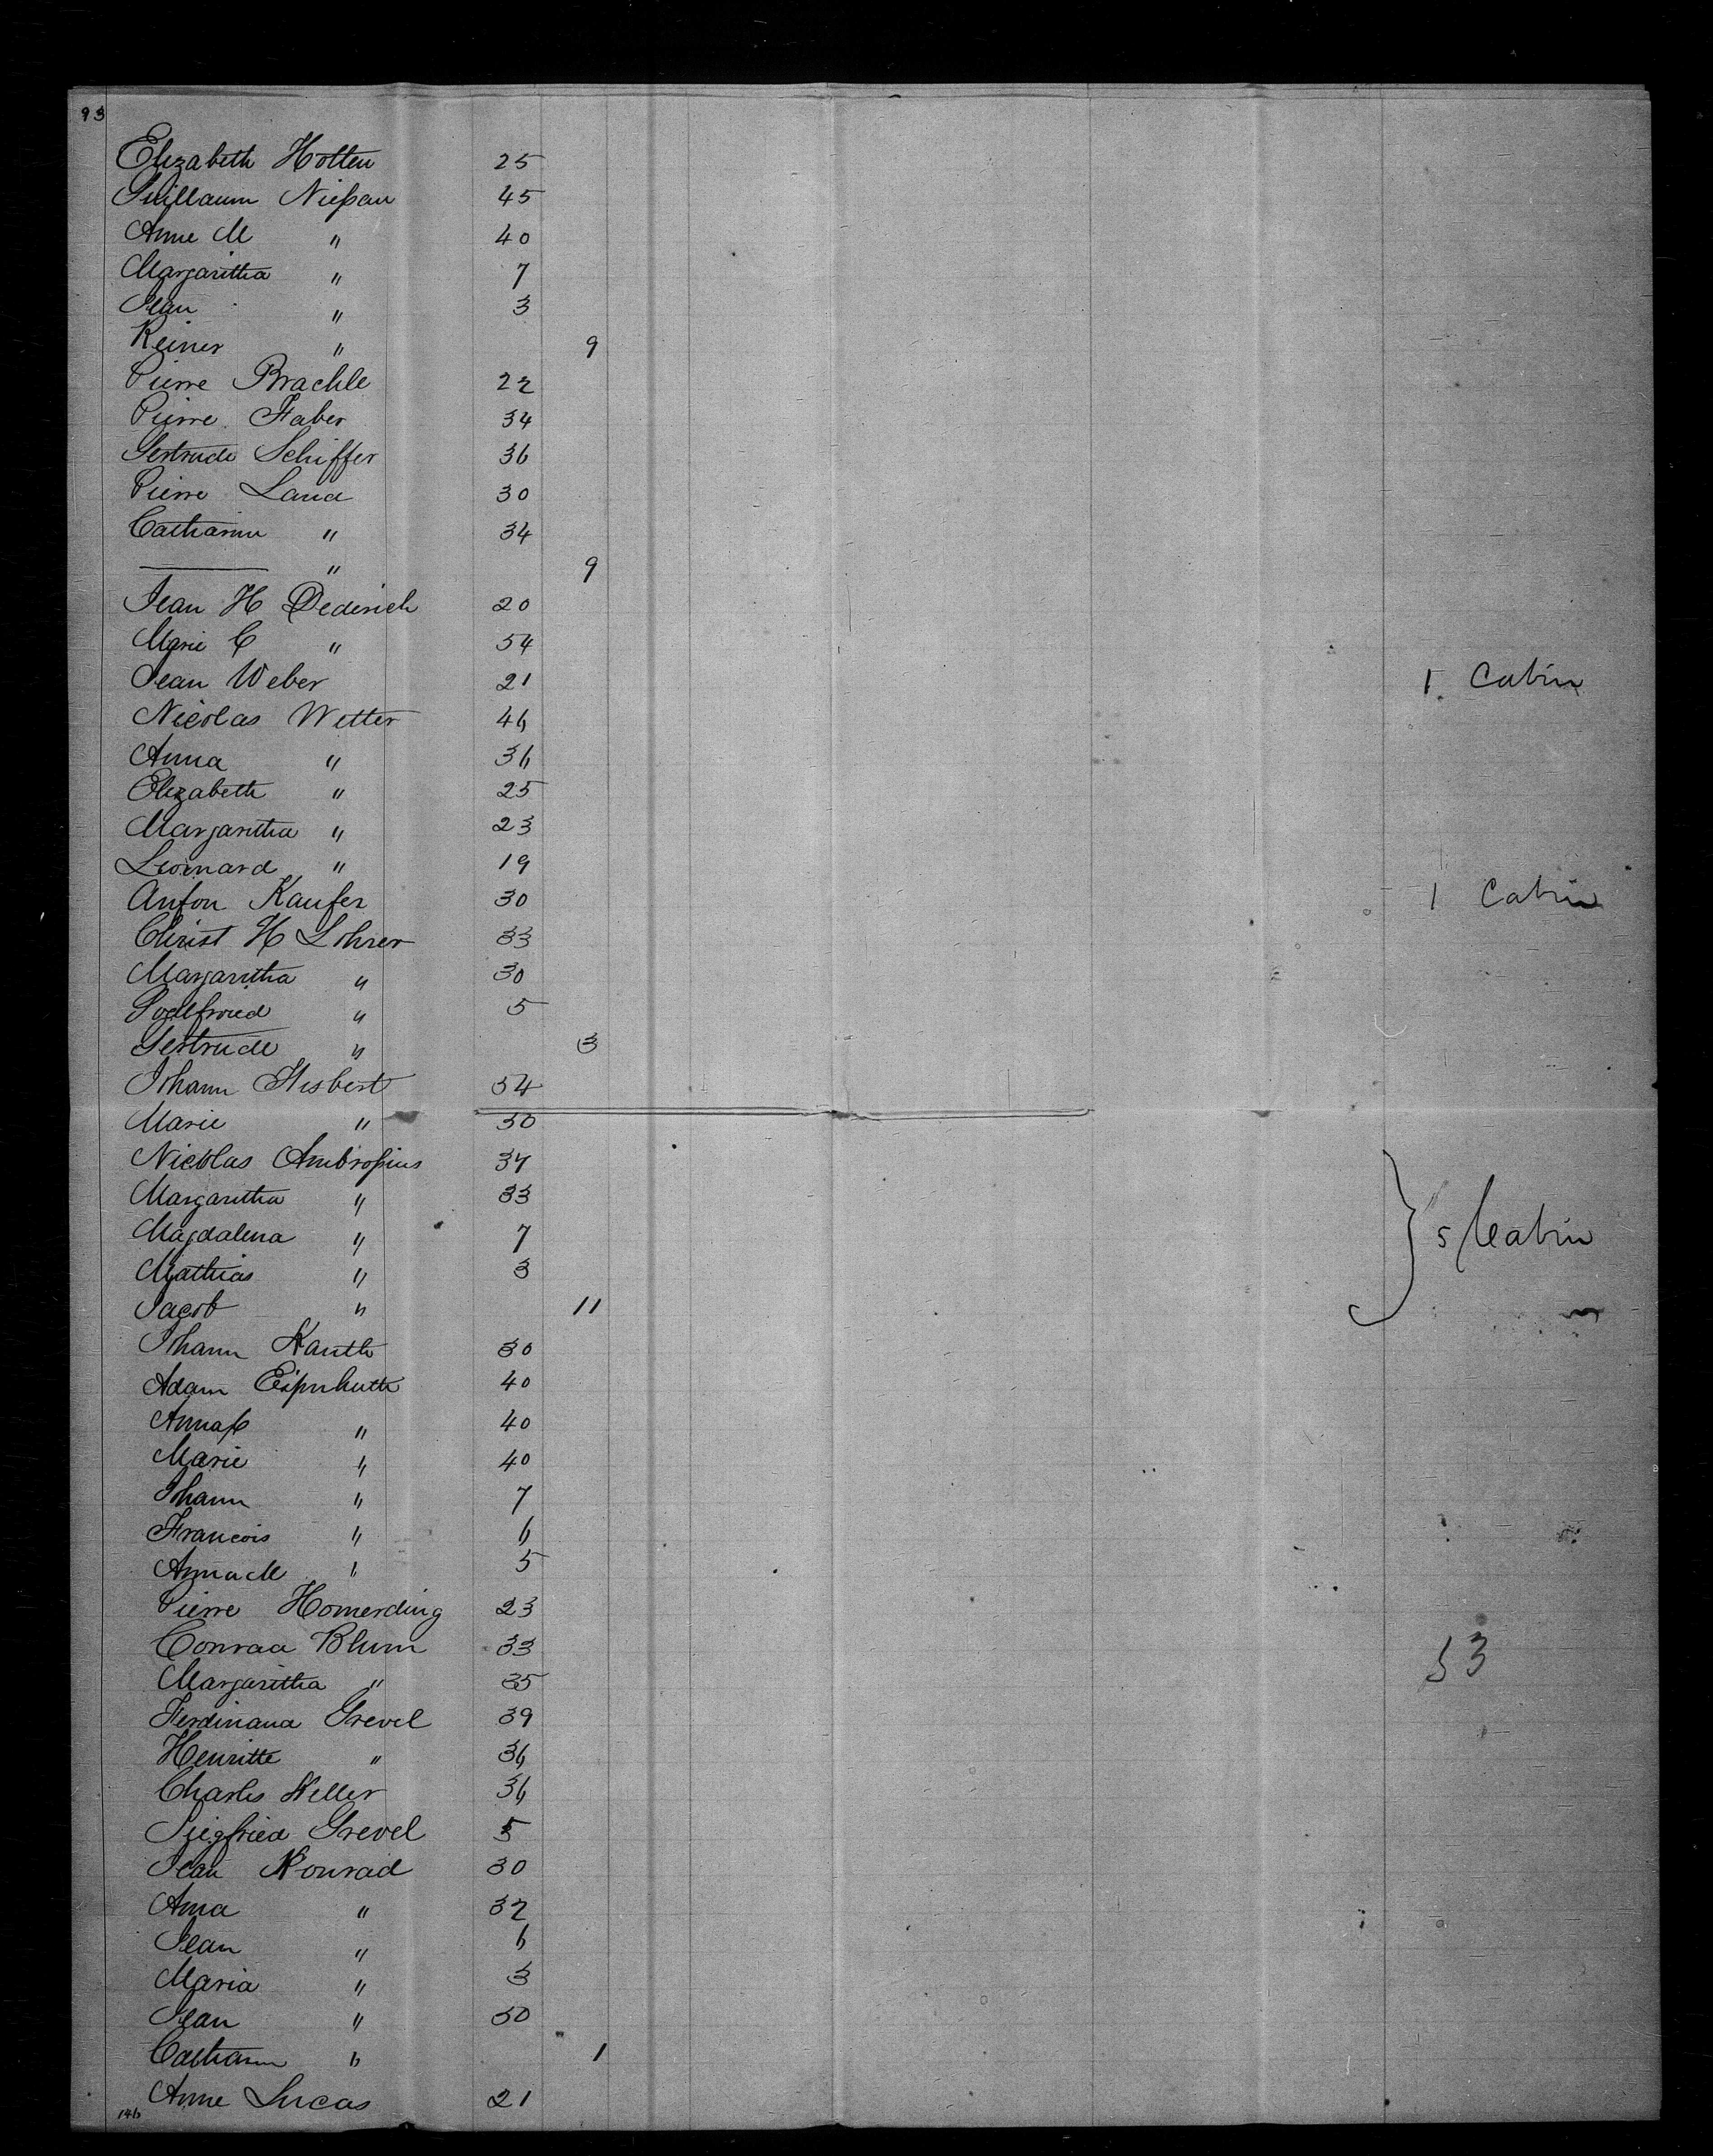 93
Elizabeth Hotten 25
Guillaum Nießan 45
Anne M " 40
Margaritha " 7
Jean " 3
Reiner " 9
Pierre Brachle 22
Pierre Faber 34
Gertrude Schiffer 36
Pierre Land 30
Catharine " 34
—— " 9
Jean H Dederich 20
Marie C " 54
Jean Weber 21 1 Cabin
Nicolas Wetter 46
Anna " 36
Elizabeth " 25
Margaritha " 23
Leonard " 19
Anton Kaufer 30 1 Cabin
Christ H Lohrer 33
Margaritha " 30
Godfried " 5
Gertrude " 3
Johann Hisbert 54
Marie " 50
Nicolas Ambroßius 37
Margaritha " 33
Magdalena " 7 } 5 Cabin
Mathias " 3
Jacob " 11
Johann Kauth 30
Adam Eißnhuth 40
Anna C " 40
Marie " 40
Johann " 7
Francois " 6
Anna M " 5
Pierre Homerding 23
Conrad Blum 33 53
Margaritha " 35
Ferdinand Grevel 39
Henritte " 36
Charles Keller 36
Siegfried Grevel 5
Jean Konrad 30
Anna " 32
Jean " 6
Maria " 3
Jean " 50
Catharin " 1
Anne Lucas 21
146